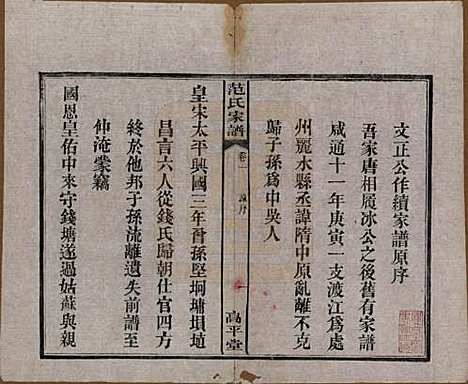 文正公作續家譜原序
吾家唐相履冰公之後舊有家譜
咸通十一年庚寅一支渡江為處
州麗水縣丞諱隋中原亂離不克
歸子孫為中吳人
范氏家譜
卷一
高平堂
皇宋太平興國三年曾孫堅坰墉塤埴
昌言六人從錢氏歸朝仕宦四方
終於他邦子孫流離遺失前譜至
仲淹蒙竊
國恩皇佑中來守錢塘遂過姑蘇與親